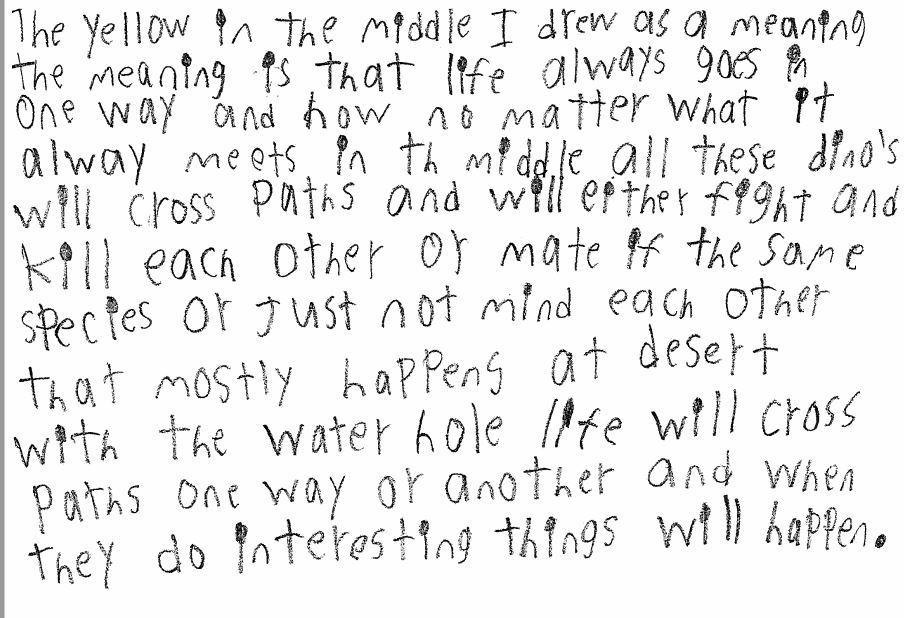 The yellow in the middle I drew as a meaning
the meaning is that life always goes in
One way and how no matter what it
alway meets in th middle all these dino's
will cross paths and will either fight and
kill each other or mate if the same
species or just not mind each other
that mostly happens at desert
with the water hole life will cross
paths one way or another and when
they do interesting things will happen.